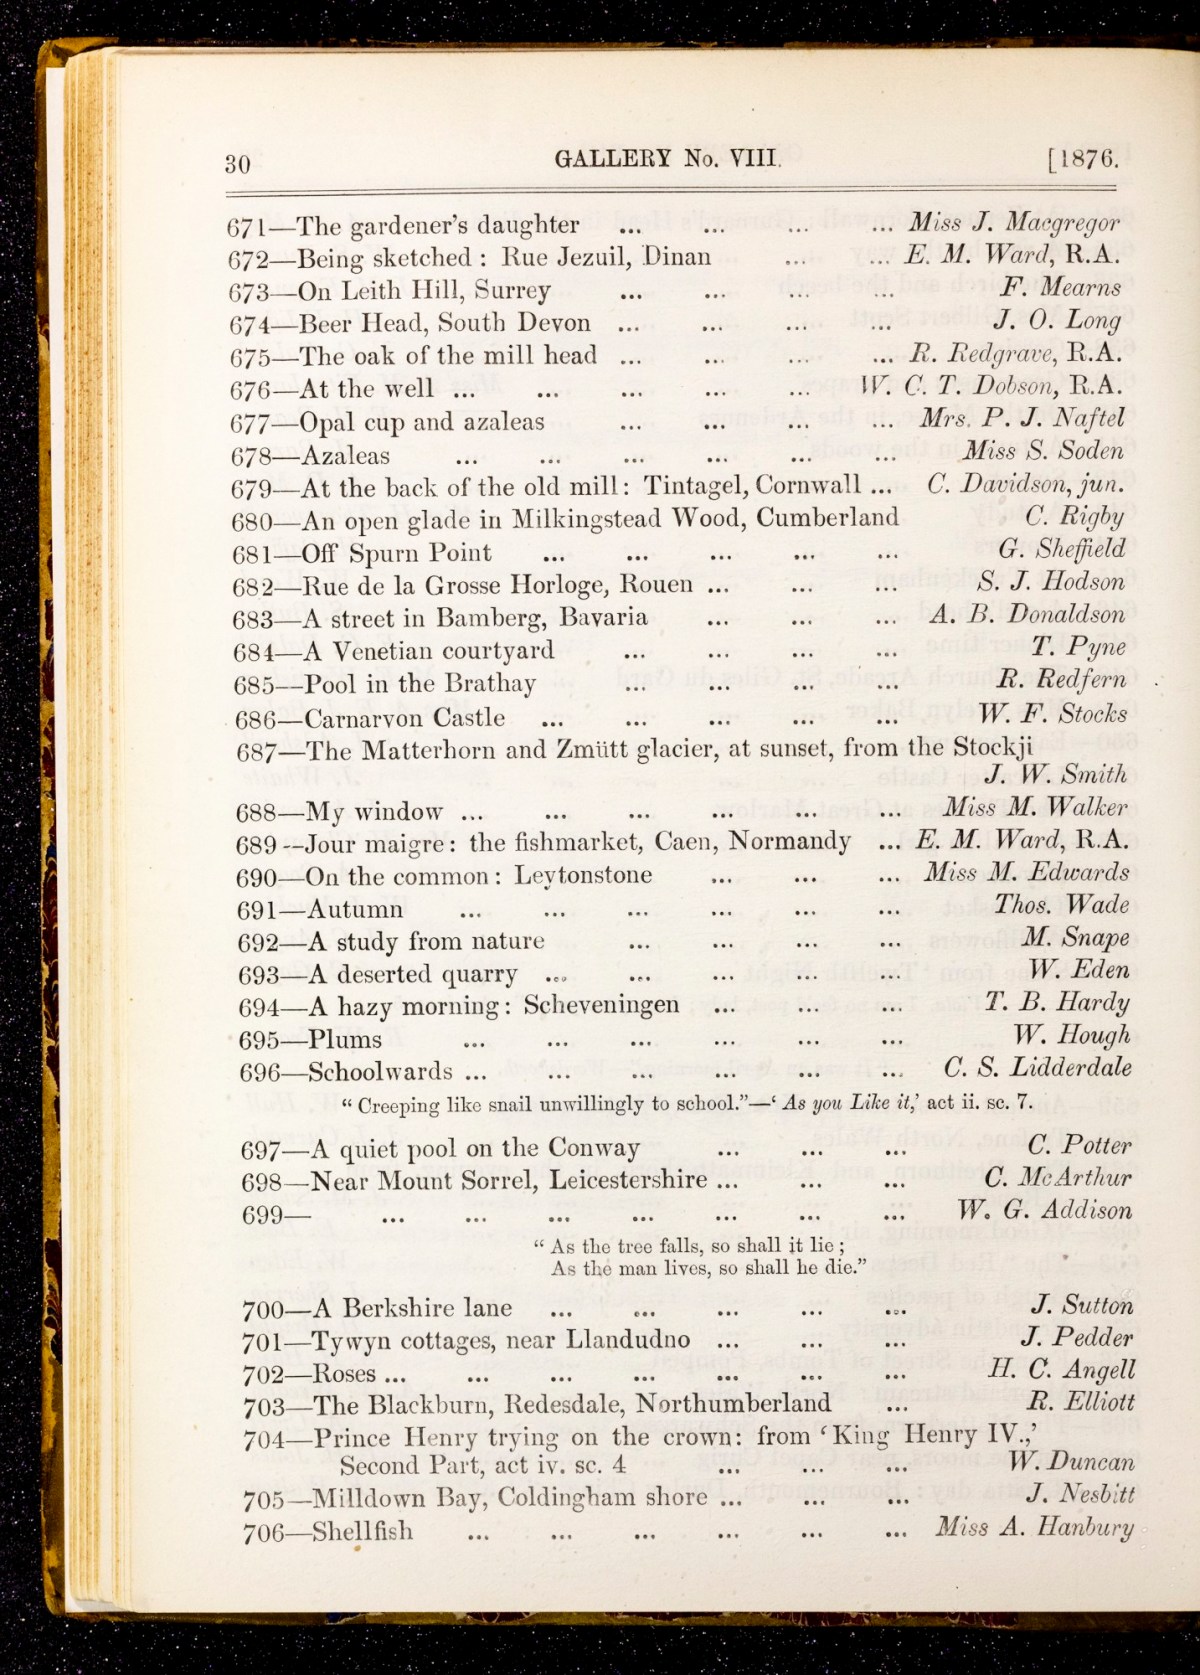 30 GALLERY No. VIII. [1876.
671—The gardener's daughter ... ... ... ... Miss J. Macgregor
672—Being sketched : Rue Jezuil, Dinan ... ... E. M. Ward, R.A.
673—On Leith Hill, Surrey ... ... ... ... F. Mearns
674—Beer Head, South Devon ... ... ... ... J. O. Long
675—The oak of the mill head ... ... ... ... R. Redgrave, R.A.
676—At the well ... ... ... ... ... W. C. T. Dobson, R.A.
677—Opal cup and azaleas ... ... ... ... Mrs. P. J. Naftel
678—Azaleas ... ... ... ... ... ... Miss S. Soden
679—At the back of the old mill : Tintagel, Cornwall ... C. Davidson, jun.
680—An open glade in Milkingstead Wood, Cumberland C. Rigby
681—Off Spurn Point ... ... ... ... ... G. Sheffield
682—Rue de la Grosse Horloge, Rouen ... ... ... S. J. Hodson
683—A street in Bamberg, Bavaria ... ... ... A. B. Donaldson
684—A Venetian courtyard ... ... ... ... T. Pyne
685—Pool in the Brathay ... ... ... ... R. Redfern
686—Carnarvon Castle ... ... ... ... ... W. F. Stocks
687—The Matterhorn and Zmütt glacier, at sunset, from the Stockji
J. W. Smith
688—My window ... ... ... ... ... ... Miss M. Walker
689—Jour maigre : the fishmarket, Caen, Normandy ... E. M. Ward, R.A.
690—On the common : Leytonstone ... ... ... Miss M. Edwards
691—Autumn ... ... ... ... ... ... Thos. Wade
692—A study from nature ... ... ... ... M. Snape
693—A deserted quarry ... ... ... ... ... W. Eden
694—A hazy morning : Scheveningen ... ... ... T. B. Hardy
695—Plums ... ... ... ... ... ... W. Hough
696—Schoolwards ... ... ... ... ... ... C. S. Lidderdale
“ Creeping like snail unwillingly to school.”—‘ As you Like it,’ act ii. sc. 7.
697—A quiet pool on the Conway ... ... ... C. Potter
698—Near Mount Sorrel, Leicestershire ... ... ... C. McArthur
699— ... ... ... ... ... ... ... W. G. Addison
“ As the tree falls, so shall it lie ;
As the man lives, so shall he die.”
700—A Berkshire lane ... ... ... ... ... J. Sutton
701—Tywyn cottages, near Llandudno ... ... ... J. Pedder
702—Roses ... ... ... ... ... ... ... H. C. Angell
703—The Blackburn, Redesdale, Northumberland ... R. Elliott
704—Prince Henry trying on the crown : from ‘King Henry IV.,’
Second Part, act iv. sc. 4 ... ... ... W. Duncan
705—Milldown Bay, Coldingham shore ... ... ... J. Nesbitt
706—Shellfish ... ... ... ... ... ... Miss A. Hanbury